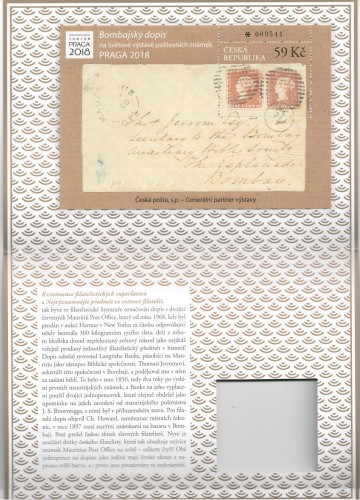 PRAGA
2018
Bombajský dopis
na Světové výstavě poštovních známek
PRAGA 2018
* 000544
ČESKÁ
REPUBLIKA
59 Kč
Secretary to the Bombay
Auxiliary Bible Society
The Esplanade
Bombay
Česká pošta, s.p. – Generální partner výstavy
Koexistence filatelistických superlativů
a Nejvýznamnější předmět ve světové filatelii,
tak bývá ve filatelistické literatuře označován dopis s dvojicí
červených Mauritiů Post Office, který od roku 1968, kdy byl
prodán v aukci Harmer v New Yorku za částku odpovídající
tehdy bezmála 300 kilogramům ryzího zlata, drží
to hlediska dosud nepřekonaný světový rekord jako nejdráže
veřejně prodaný jednotlivý filatelistický předmět v historii
Dopis odeslal reverend Langrishe Banks, působící na Mauritiu
jako zástupce Biblické společnosti, Thomasi Jerromovi,
sekretáři této společnosti v Bombaji, a poděkoval mu v něm
za zaslání biblí. To bylo v roce 1850, tedy dva roky po vydání
prvních mauricijských známek, a Banks na jeho vyplacení
použil dvojici jednopencovek, které zřejmě obdržel jako
upomínku na jejich uvedení od mauricijského poštmistra
J. S. Brownrigga, s nímž byl v příbuzenském svazku. Pro filatelii
dopis objevil Ch. Howard, zaměstnanec místních železnic,
v roce 1897 mezi starými známkami na bazaru v Bombaji.
Poté prošel řadou sbírek slavných filatelistů. Nyní je
součástí sbírky českého filatelisty, která tak obsahuje nejvíce
známek Mauritius Post Office na světě – celkem čtyři! Obě
jednopence na dopisu jako jediné mají